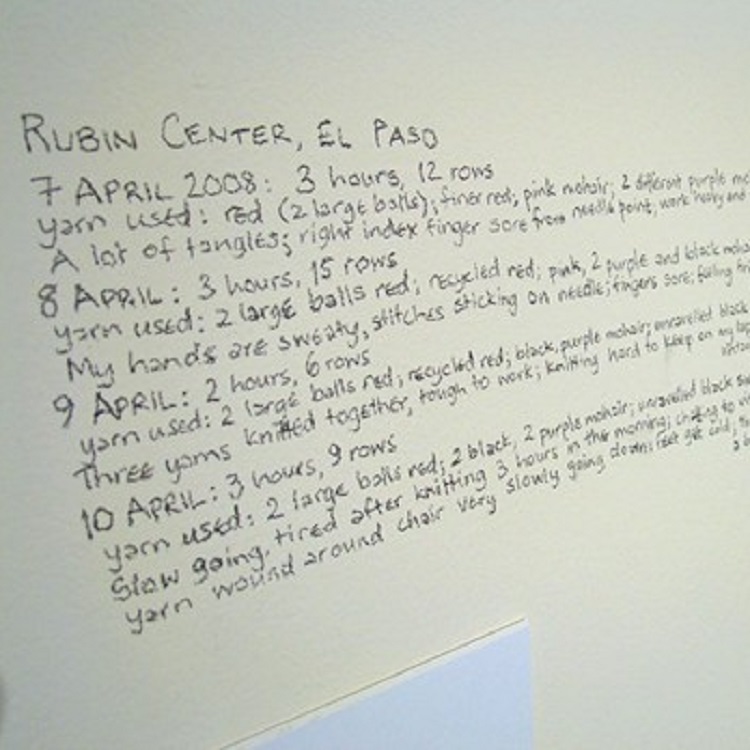 RUBIN CENTER, EL PASO
7 APRIL 2008: 3 hours, 12 rows
yarn used: red (2 large balls); finer red; pink mohair; 2 different purple
A lot of tangles; right index finger sore from needle point, work heavy and
8 APRIL: 3 hours, 15 rows
yarn used: 2 large balls red; recycled red; pink, 2 purple and black
My hands are sweaty, stitches sticking on needle; fingers sore; feeling
9 APRIL: 2 hours, 6 rows
yarn used: 2 large balls red; recycled red; black, purple mohair; unravelled black
Three yarns knitted together, tough to work; knitting hard to keep on my
10 APRIL: 3 hours, 9 rows
yarn used: 2 large balls red; 2 black, 2 purple mohair; unravelled black
Slow going, tired after knitting 3 hours in the morning; to
yarn wound around chair very slowly going down; feet get cold;